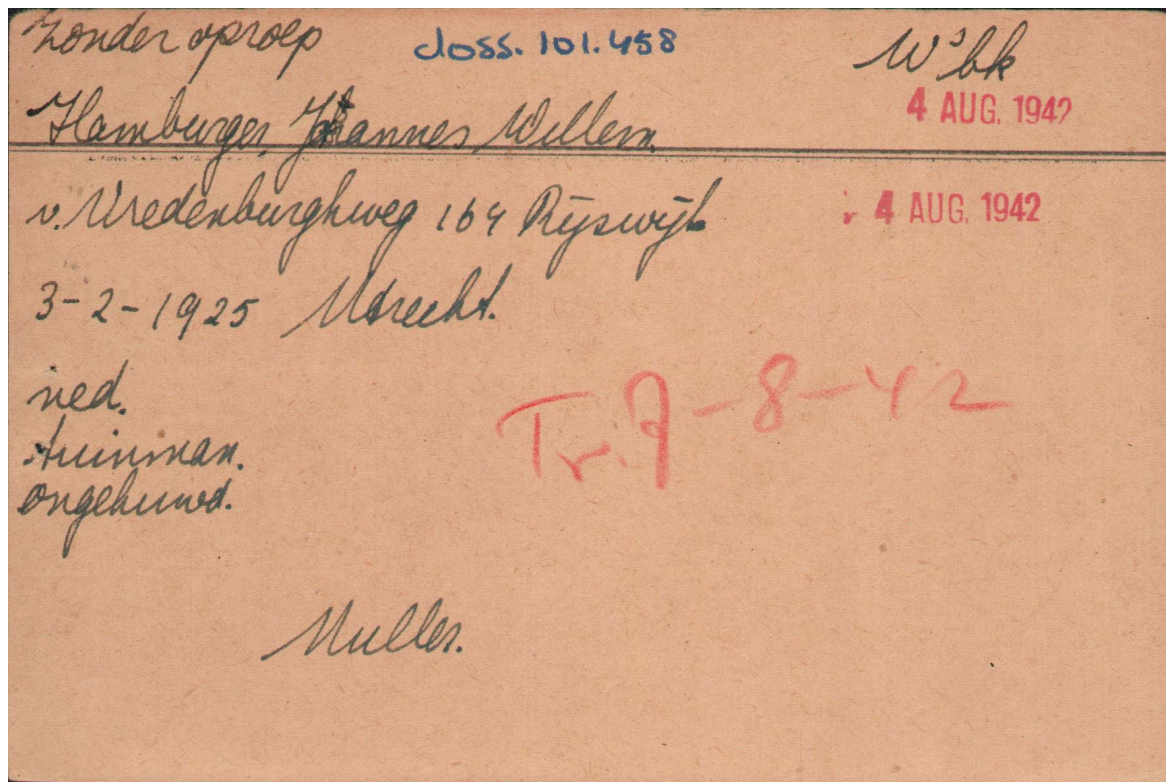 Zonder oproep doss. 101.458 W'bk
4 AUG. 1942
Hamburger, Johannes, Willem.
v. Vredenburghweg 164 Rijswijk 4 AUG. 1942
3-2-1925 Utrecht.
ned.
tuinman.
ongehuwd.
Tr. 7-8-42
Muller.